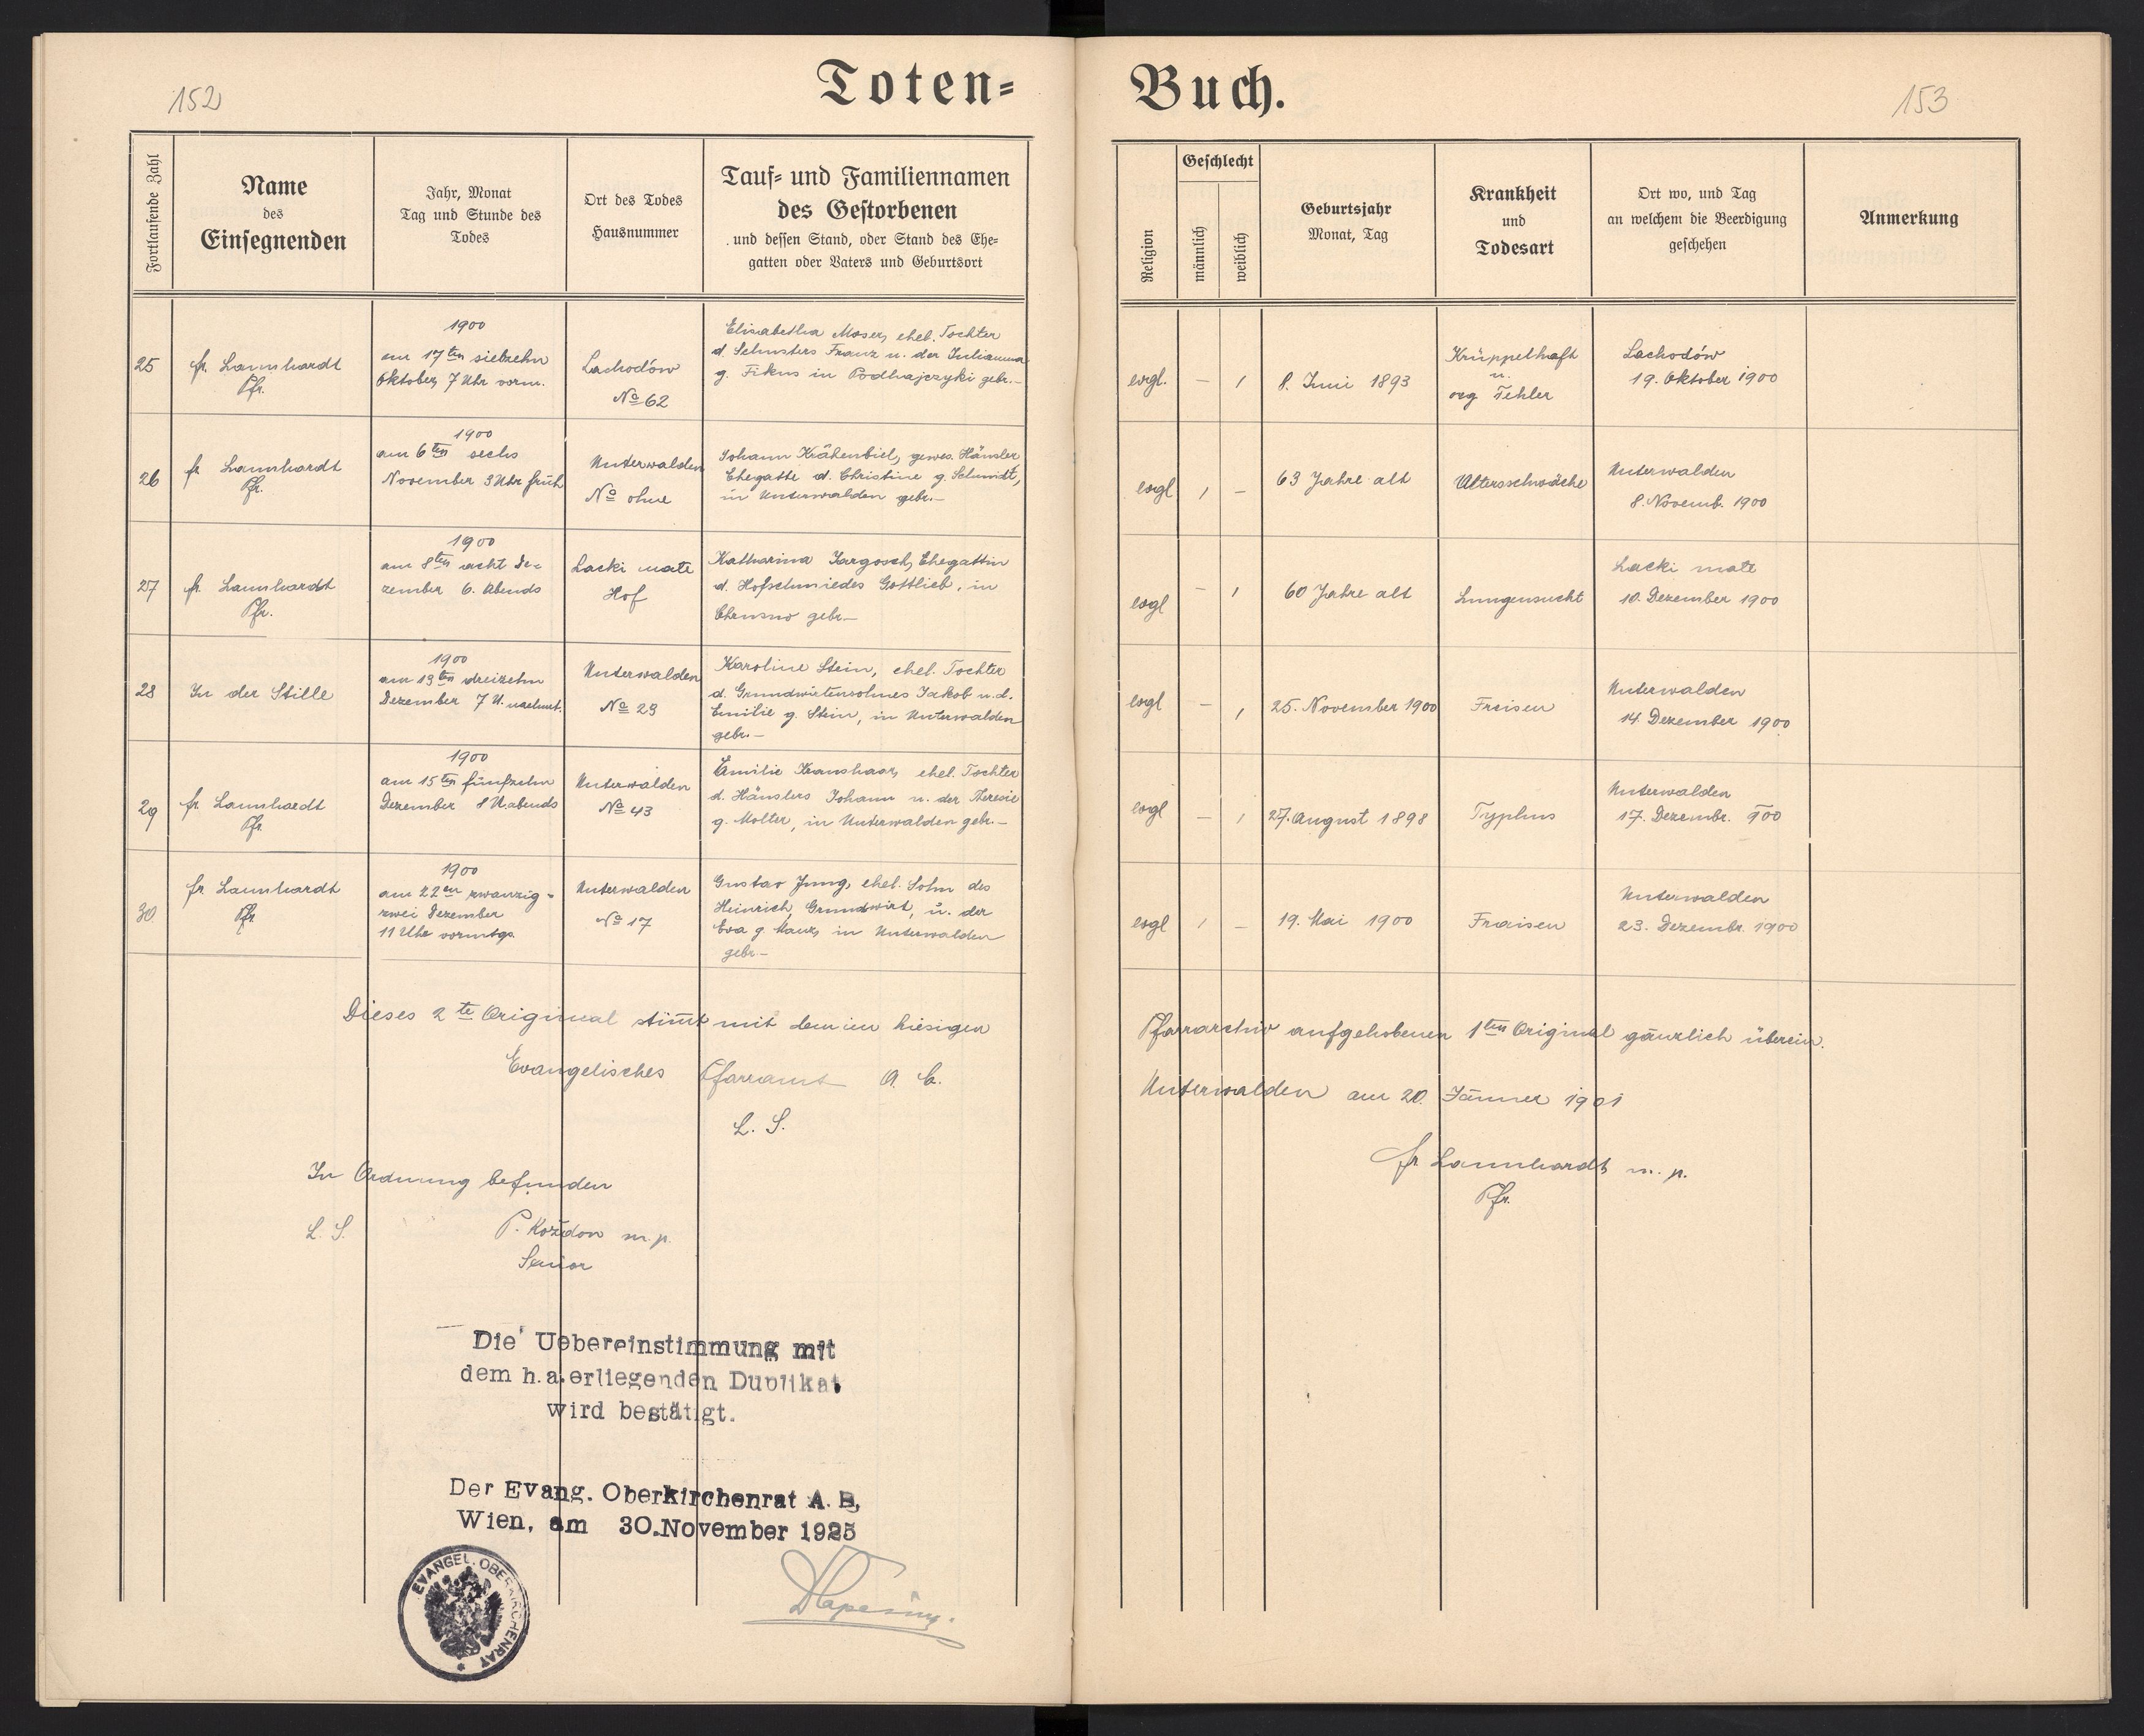 152
Toten=
Fortlaufende Zahl
Name
des
Einsegnenden
Jahr, Monat
Tag und Stunde des
Todes
Ort des Todes
Hausnummer
Tauf= und Familiennamen
des Gestorbenen
und dessen Stand, oder Stand des Ehe=
gatten oder Vaters und Geburtsort
25
fr. Lannhardt
Pfr.
1900
am 17ten siebzehn
Oktober, 7 Uhr vorm.
Lachodów
No 62
Elisabetha Moser, ehel. Tochter
d. Schusters Franz u. der Julianna
g. Fikus in Podhajczyki gebr.-
26
fr. Lannhardt
Pfr.
1900
am 6ten sechs
November 3 Uhr früh
Unterwalden
No ohne
Johann Krähenbiel, gewes. Häusler
Ehegatte d. Christine g. Schmidt,
in Unterwalden gebr.-
27
fr. Lannhardt
Pfr.
1900
am 8ten acht De-
zember 6. Abends
Lacki małe
Hof
Katharina Jargosch, Ehegattin
d. Hofschmiedes Gottlieb, in
gebr.-
28
In der Stille
1900
am 13ten dreizehn
Dezember 7 U. nachmt.
Unterwalden
No 29
Karoline Stein, ehel. Tochter
d. Grundwirtensohnes Jakob u. d.
Emilie g. Stein, in Unterwalden
gebr.-
29
fr. Lannhardt
Pfr.
1900
am 15ten fünfzehn
Dezember 8 U. abends
Unterwalden
No 43
Emilie Kranshaar, ehel. Tochter
d. Häuslers Johann u. der Theresie
g. Molter, in Unterwalden gebr.-
30
fr. Lannhardt
Pfr.
1900
am 22en zwanzig-
zwei Dezember
11 Uhr vormtgs.
Unterwalden
No 17
Gustav Jung, ehel. Sohn des
Heinrich, Grundwirt, u. der
Eva g. Manz, in Unterwalden
gebr.-
Dieses 2te Original stimt mit dem im hiesigen
Evangelisches Pfarramt A. C.
L. S.
In Ordnung befunden
L. S.
P. Kożdon m. p.
Senior
Die Uebereinstimmung mit
dem h.a.erliegenden Duplikat
wird bestätigt.
Der Evang. Oberkirchenrat A. B,
Wien, am 30.November 1925
EVANGEL. OBERKIRCHENRAT
Buch.
153
Religion
Geschlecht
männlich
weiblich
Geburtsjahr
Monat, Tag
Krankheit
und
Todesart
Ort wo, und Tag
an welchem die Beerdigung
geschehen
Anmerkung
evgl.
8. Juni 1893
Krüppelhaft
u.
org Fehler
Lachodów
19. Oktober 1900
evgl
63 Jahre alt
Altersschwäche
Unterwalden
8. Novemb. 1900
evgl
60 Jahre alt
Lungensucht
Lacki małe
10. Dezember 1900
evgl
25. November 1900
Freisen
Unterwalden
14. Dezember 1900
evgl
27. August 1898
Typhus
Unterwalden
17. Dezembr. 900
evgl
19. Mai 1900
Fraisen
Unterwalden
23. Dezembr. 1900
Pfarrarchiv aufgehobenen 1ten Original gänzlich überein.
Unterwalden am 20. Jänner 1901
fr Lannhardt m. p.
Pfr.